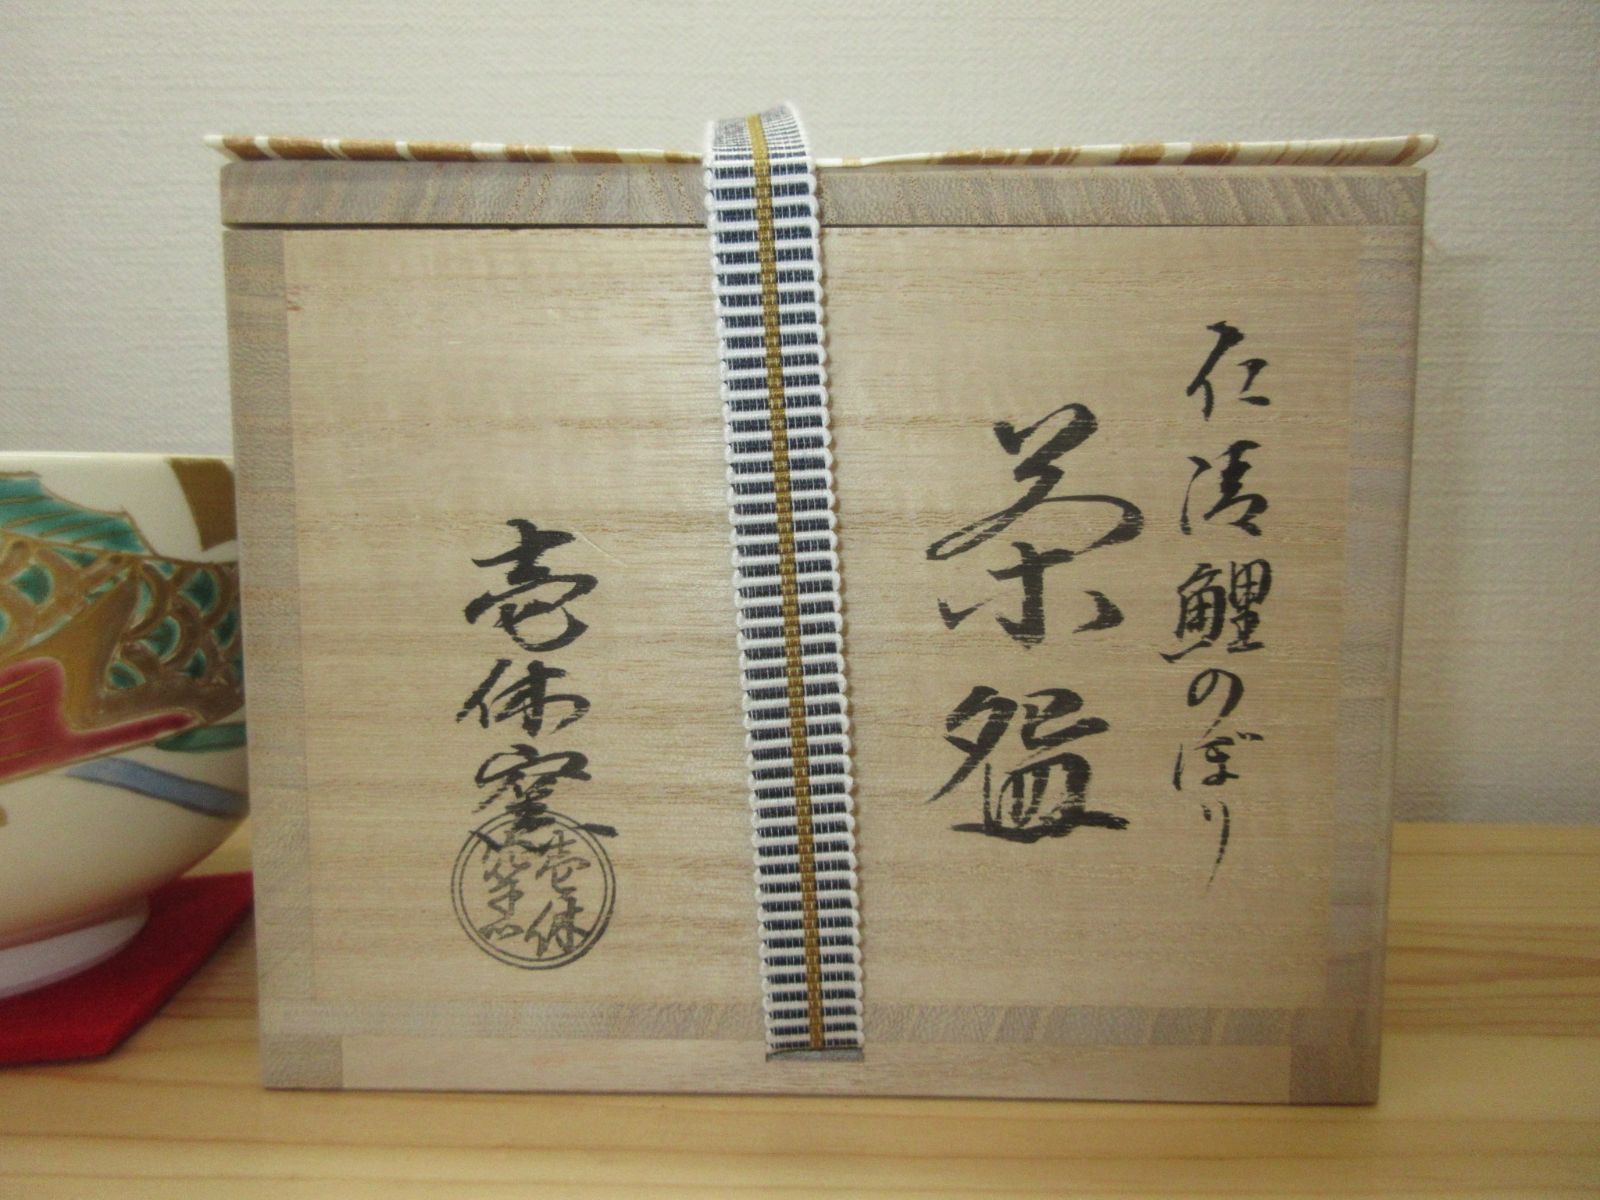 仁清鯉のぼり
茶盌
壱休窯
壱休